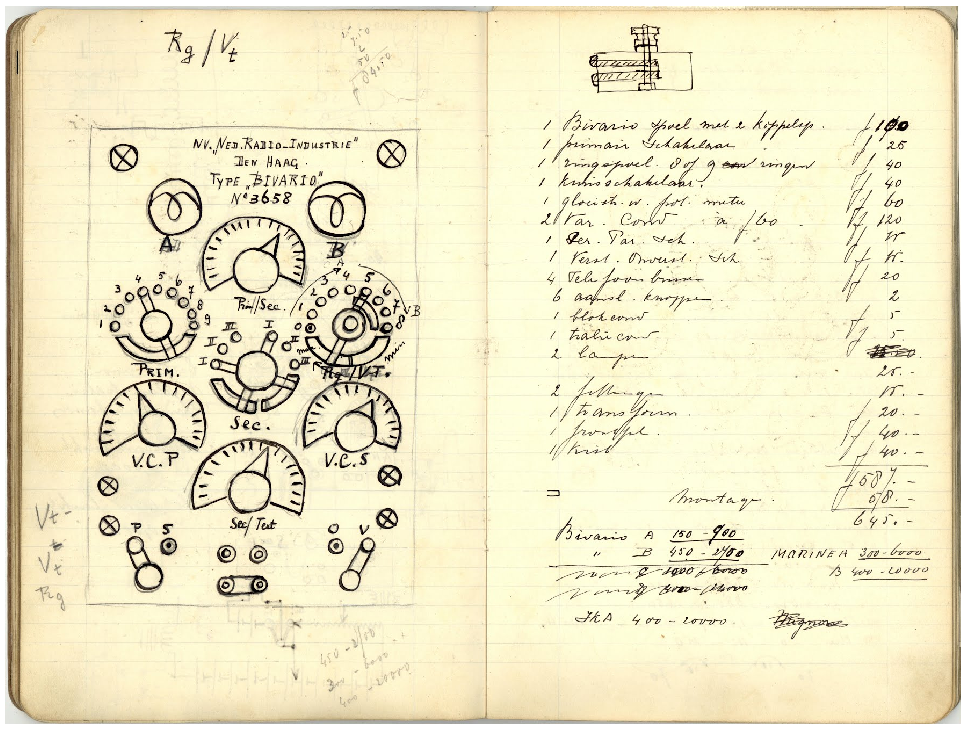 Rg/Vt
NV. „NED. RADIO-INDUSTRIE"
DEN HAAG.
TYPE „BIVARIO"
No 3658
A
B
Prim/Sec.
A
1 2 3 4 5 6 7 8 9
1 2 3 4 5 6 7 8
V B
III I
II II
I III
min
PRIM.
Rg/V.T.
Sec.
V.C.P
V.C.S
Sec/Test
P S
V
Vt -
Vt
Vt
Rg
450 - 2700
300 - 6000
400 - 20000
1 Bivario spoel met 2 koppelsp. f 100
1 primair schakelaar f 25
1 ringspoel. 8 of 9 ringen f 40
1 kruisschakelaar. f 40
1 gloeistr. w. pot. meter f 60
2 Var. Cond à f 60 f 120
1 Ser. Par. Sch.
1 Verst. Onverst. Sch
4 Telefoonbussen f 20
6 aansl. knoppen 2
1 blokcond f 5
1 tralie cond f 5
2 lampen
25.-
2 fittingen
1 transform. f 20.-
1 frontpl. f 40.-
1 kist f 40.-
f 587.-
Montage. 58.-
645.-
Bivario A 150 - 900
„ B 450 - 2700 MARINE A 300-6000
B 400-20000
IKA 400 - 20000